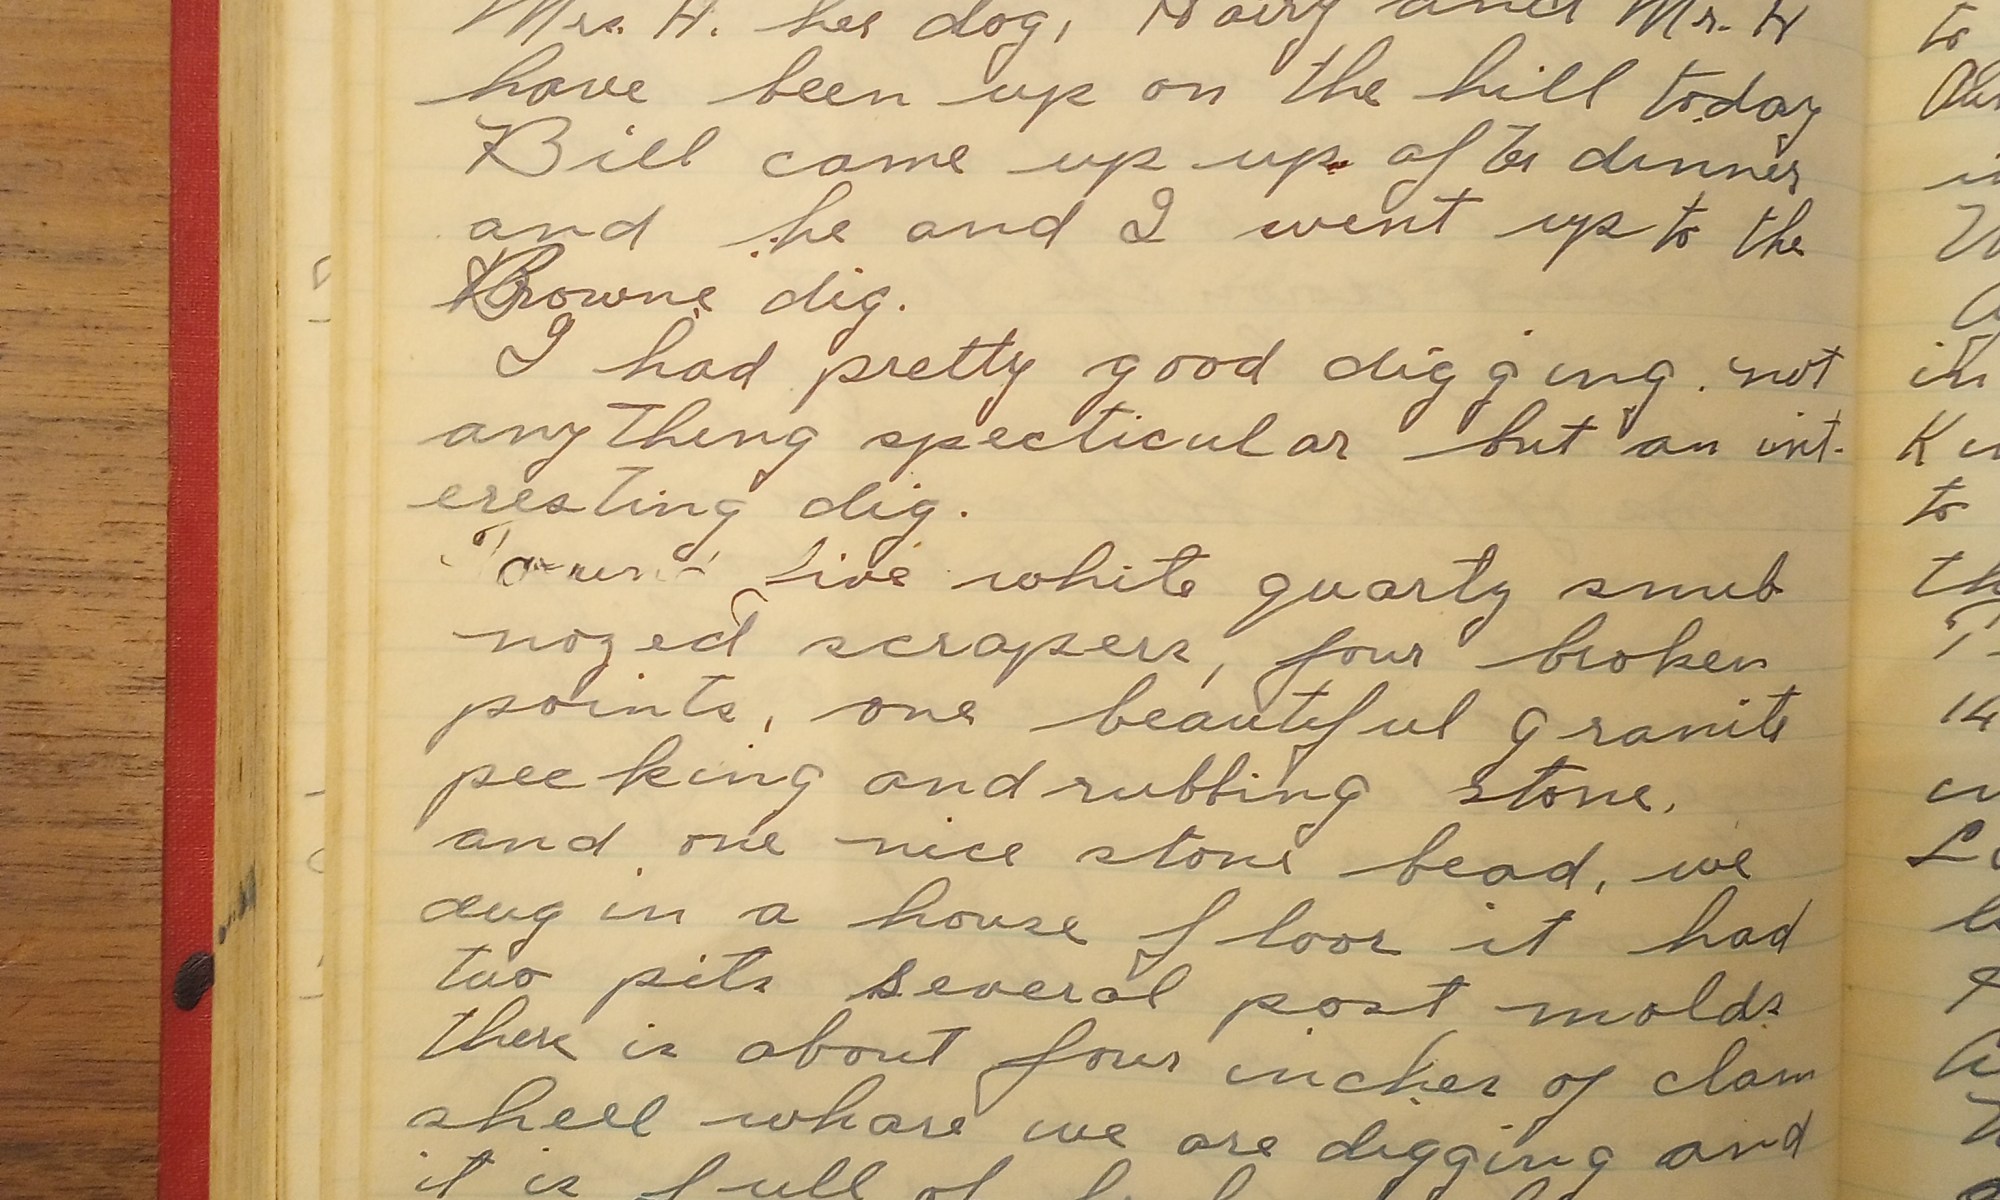 Mrs. H. her dog, Hairy and Mr. H
have been up on the hill today
Bill came up up after dinner
and he and I went up to the
Browne dig.
I had pretty good digging. not
anything specticular but an int-
eresting dig.
Found five white quartz snub
nozed scrapers, four broken
points, one beautiful granite
pecking and rubbing stone,
and one nice stone bead, we
dug in a house floor it had
two pits several post molds
there is about four inches of clam
shell whare we are digging and
it is full of
to
in
K
to
14